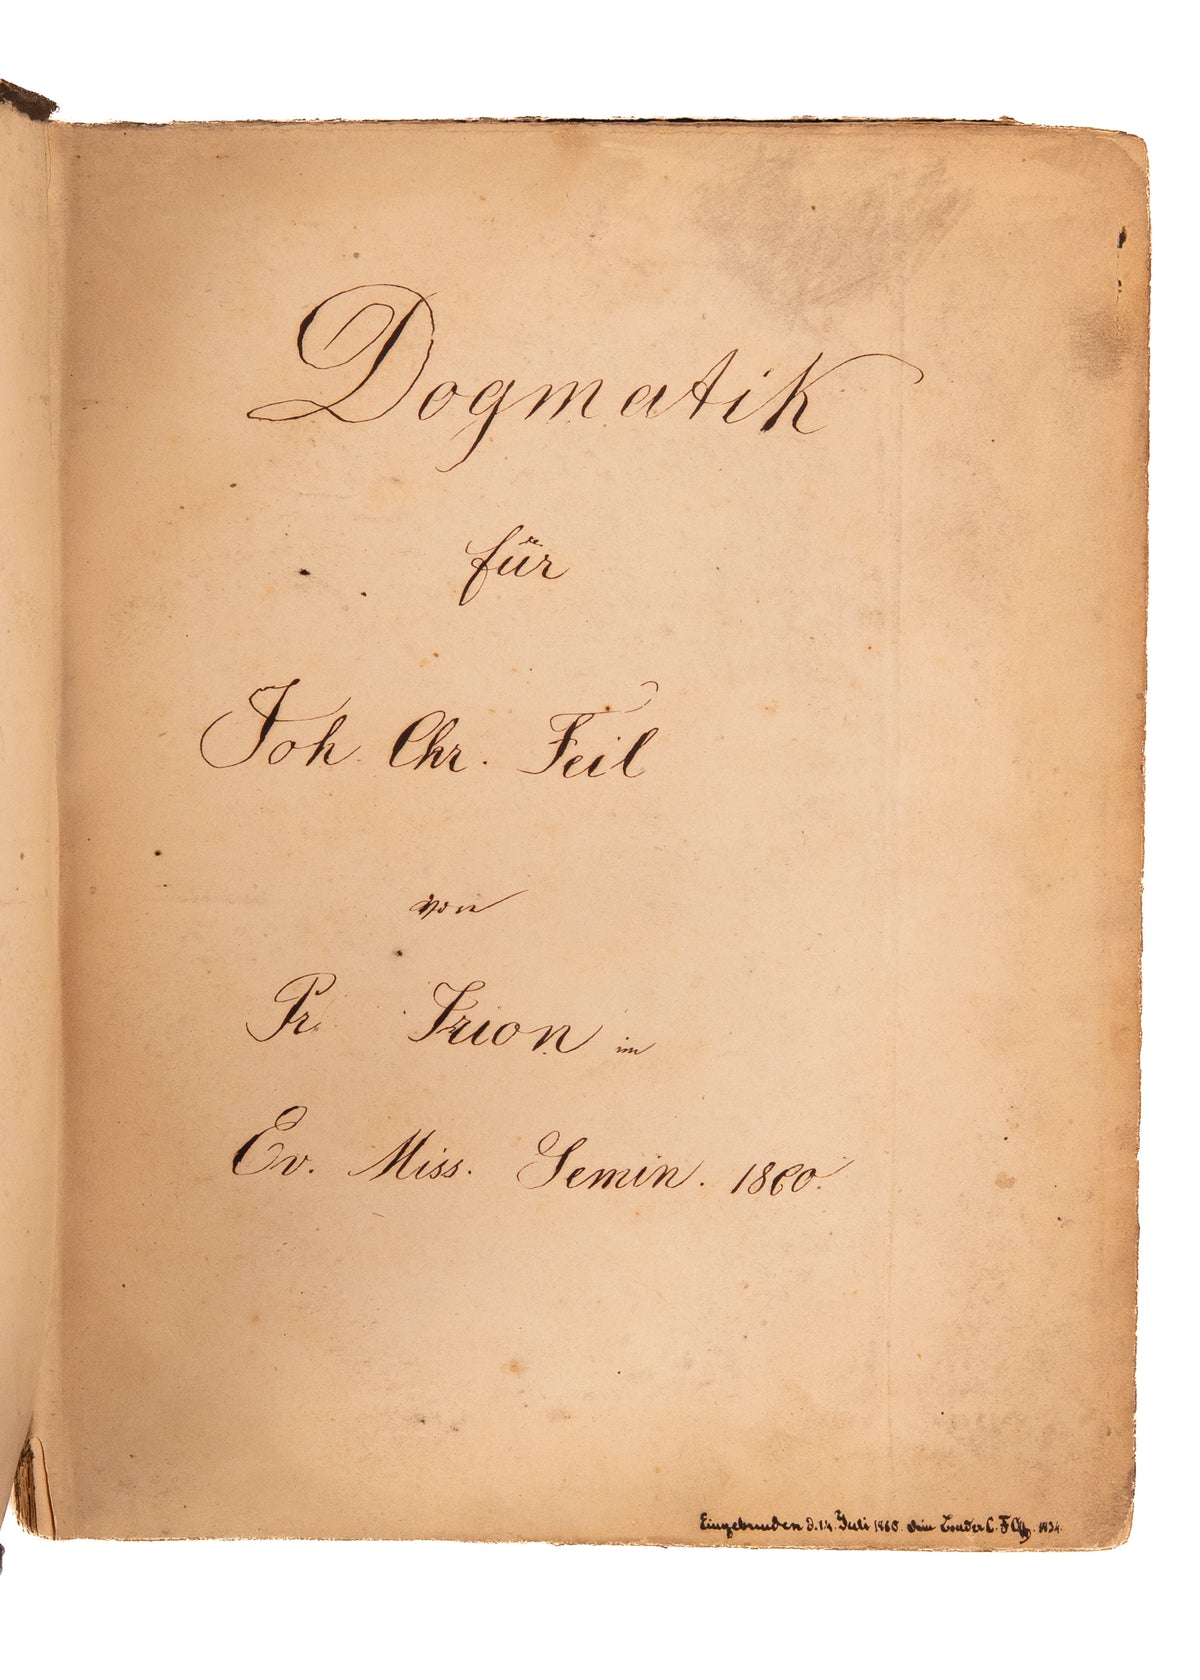 Dogmatik
für
Joh. Chr. Feil
von
Pr. Irion im
Ev. Miss. Semin. 1860.
Eingebunden d. 14. Juli 1860. dein C. F.